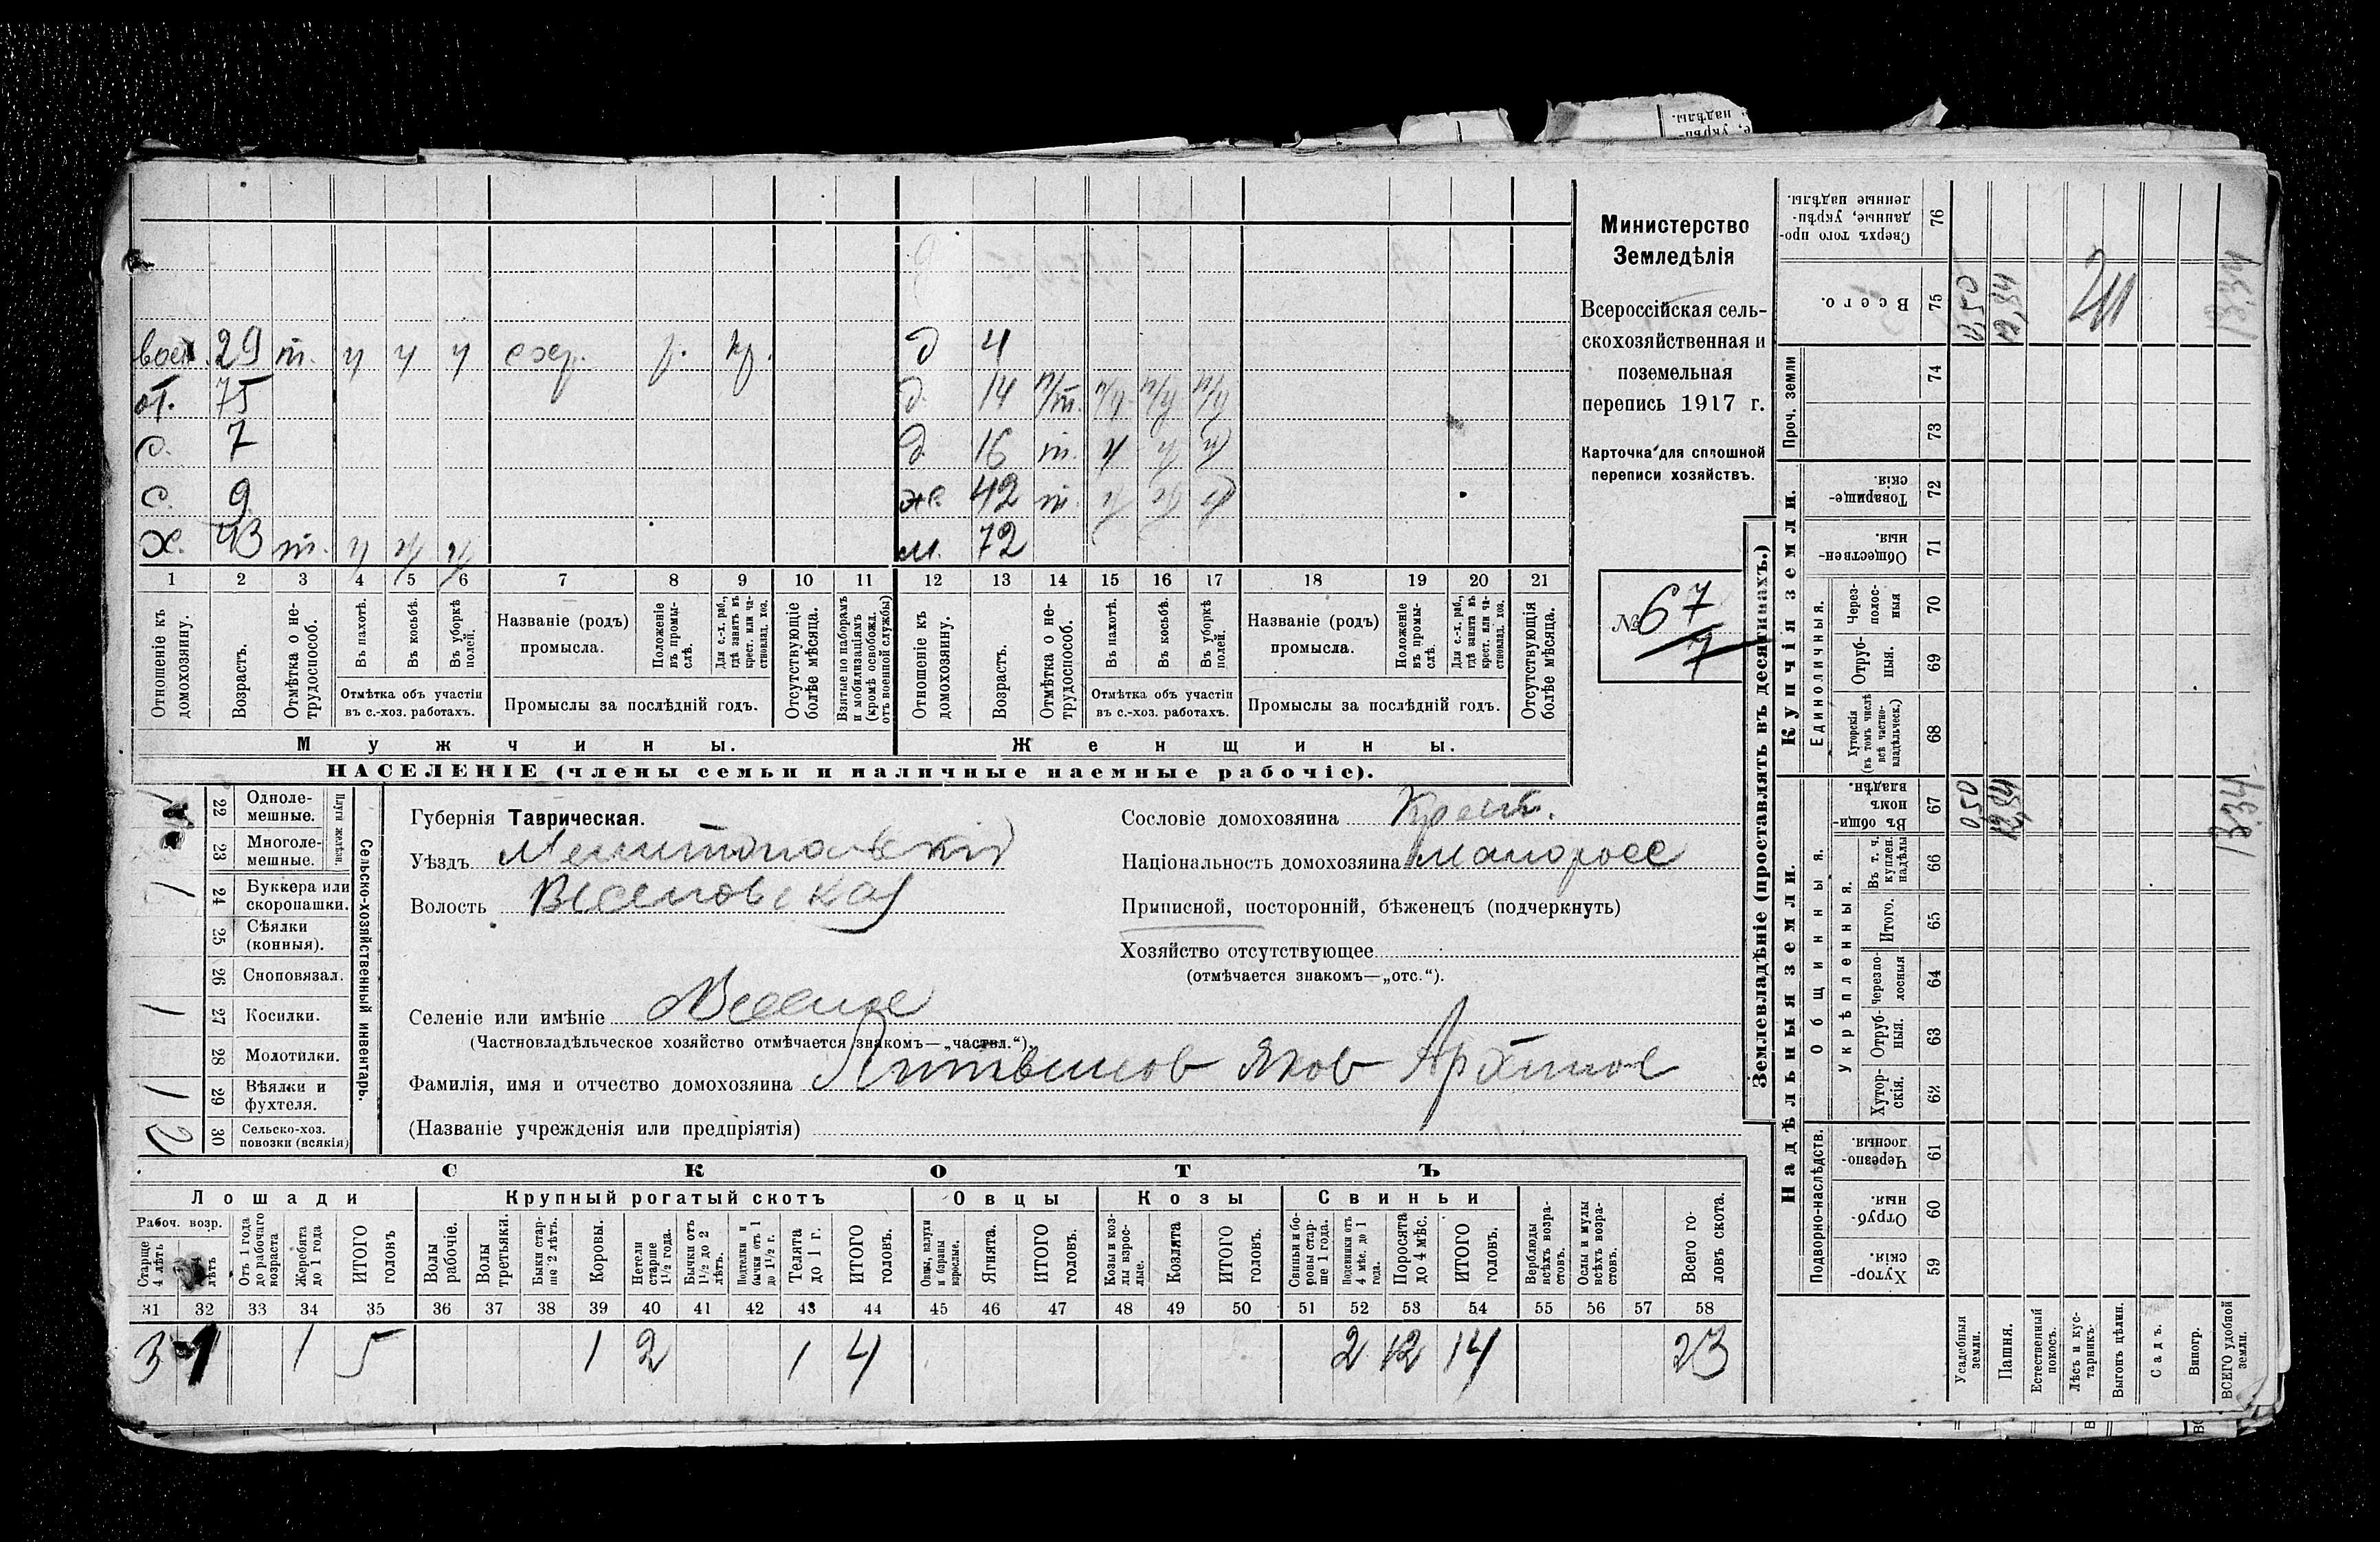 Министерство
Земледѣлія
Всероссійская сель-
скохозяйственная и
поземельная
перепись 1917 г.
Карточка для сплошной
переписи хозяйствъ.
№ 67
7
воен. 29 т. ч ч ч
от. 75
с. 7
с. 9
х. 43 т. ч ч ч
д 4
д. 14 п/т. п/ч п/ч п/ч
д 16 т. ч ч ч
ж. 42 т. ч ч ч
м. 72
1 2 3 4 5 6 7 8 9 10 11 12 13 14 15 16 17 18 19 20 21
Отношеніе къ домохозяину.
Возрастъ.
Отмѣтка о не-трудоспособ.
Въ пахотѣ.
Въ косьбѣ.
Въ уборкѣ полей.
Отмѣтка объ участіи въ с.-хоз. работахъ.
Названіе (родъ) промысла.
Положеніе въ промы-слѣ.
Для с.-х. раб., гдѣ занятъ въ крест. или ча-стновлад. хоз.
Промыслы за послѣдній годъ.
Отсутствующіе болѣе мѣсяца.
Взятые по наборамъ и мобилизаціямъ (кромѣ освобожд. отъ военной службы)
Отношеніе къ домохозяину.
Возрастъ.
Отмѣтка о не-трудоспособ.
Въ пахотѣ.
Въ косьбѣ.
Въ уборкѣ полей.
Отмѣтка объ участіи въ с.-хоз. работахъ.
Названіе (родъ) промысла.
Положеніе въ промы-слѣ.
Для с.-х. раб., гдѣ занята въ крест. или ча-стновлад. хоз.
Промыслы за послѣдній годъ.
Отсутствующія болѣе мѣсяца.
Мужчины.
Женщины.
НАСЕЛЕНІЕ (члены семьи и наличные наемные рабочіе).
Сельско-хозяйственный инвентарь.
Плуги желѣзн.
22 Одноле-мешные.
23 Многоле-мешные.
1 24 Буккера или скоропашки.
25 Сѣялки (конныя).
26 Сноповязал.
1 27 Косилки.
28 Молотилки.
1 29 Вѣялки и фухтеля.
2 30 Сельско-хоз. повозки (всякія)
Губернія Таврическая.
Уѣздъ Мелитопольскій
Волость Веселовская
Сословіе домохозяина Крест.
Національность домохозяина Малоросс
Приписной, посторонній, бѣженецъ (подчеркнуть)
Хозяйство отсутствующее
(отмѣчается знакомъ—„отс.“).
Селеніе или имѣніе Веселое
(Частновладѣльческое хозяйство отмѣчается знакомъ—„частвл.“)
Фамилія, имя и отчество домохозяина Литвинов Яков Архипов
(Названіе учрежденія или предпріятія)
СКОТЪ
Лошади
Крупный рогатый скотъ
Овцы
Козы
Свиньи
Рабоч. возр.
Старше 4 лѣтъ
лѣтъ
Отъ 1 года до рабочаго возраста
Жеребята до 1 года
ИТОГО головъ
Волы рабочіе.
Волы третьяки.
Быки стар-ше 2 лѣтъ.
Коровы.
Нетели старше 1 1/2 года.
Бычки отъ 1 1/2 до 2 лѣтъ.
Подтелки и бычки отъ 1 до 1 1/2 г.
Телята до 1 г.
ИТОГО головъ.
Овцы, валухи и бараны взрослые.
Ягнята.
ИТОГО головъ.
Козы и коз-лы взрос-лые.
Козлята
ИТОГО головъ.
Свиньи и бо-ровы стар-ше 1 года.
Подсвинки отъ 4 мѣс. до 1 года.
Поросята до 4 мѣс.
ИТОГО головъ.
Верблюды всѣхъ возра-стовъ.
Ослы и мулы всѣхъ возра-стовъ.
Всего го-ловъ скота.
31 32 33 34 35 36 37 38 39 40 41 42 43 44 45 46 47 48 49 50 51 52 53 54 55 56 57 58
3 1 1 5 1 2 1 4 2 12 14 23
Землевладѣніе (проставлять въ десятинахъ.)
Купчія земли.
Надѣльныя земли.
Проч. земли
Единоличныя.
Общинныя.
Укрѣпленныя.
Подворно-наслѣдств.
Сверхъ того про-данные, укрѣп-ленные надѣлы. 76
Всего. 75
74
73
Товарище-скія. 72
Обществен-ныя. 71
Черес-полос-ныя 70
Отруб-ныя. 69
Хуторскія (въ томъ числѣ всѣ частно-владѣльческ.) 68
Въ общи-номъ владѣн. 67
Въ т. ч. куплен. надѣлы 66
Итого. 65
Черезпо-лосныя 64
Отруб-ныя. 63
Хутор-скія. 62
Черезпо-лосныя. 61
Отруб-ныя. 60
Хутор-скія. 59
Усадебныя земли. 0,50 0,50
Пашня. 12,84 12,84
Естественный покосъ.
Лѣсъ и кус-тарникъ.
Выгонъ цѣлин.
Садъ.
Виногр.
ВСЕГО удобной земли. 13.34 13.34